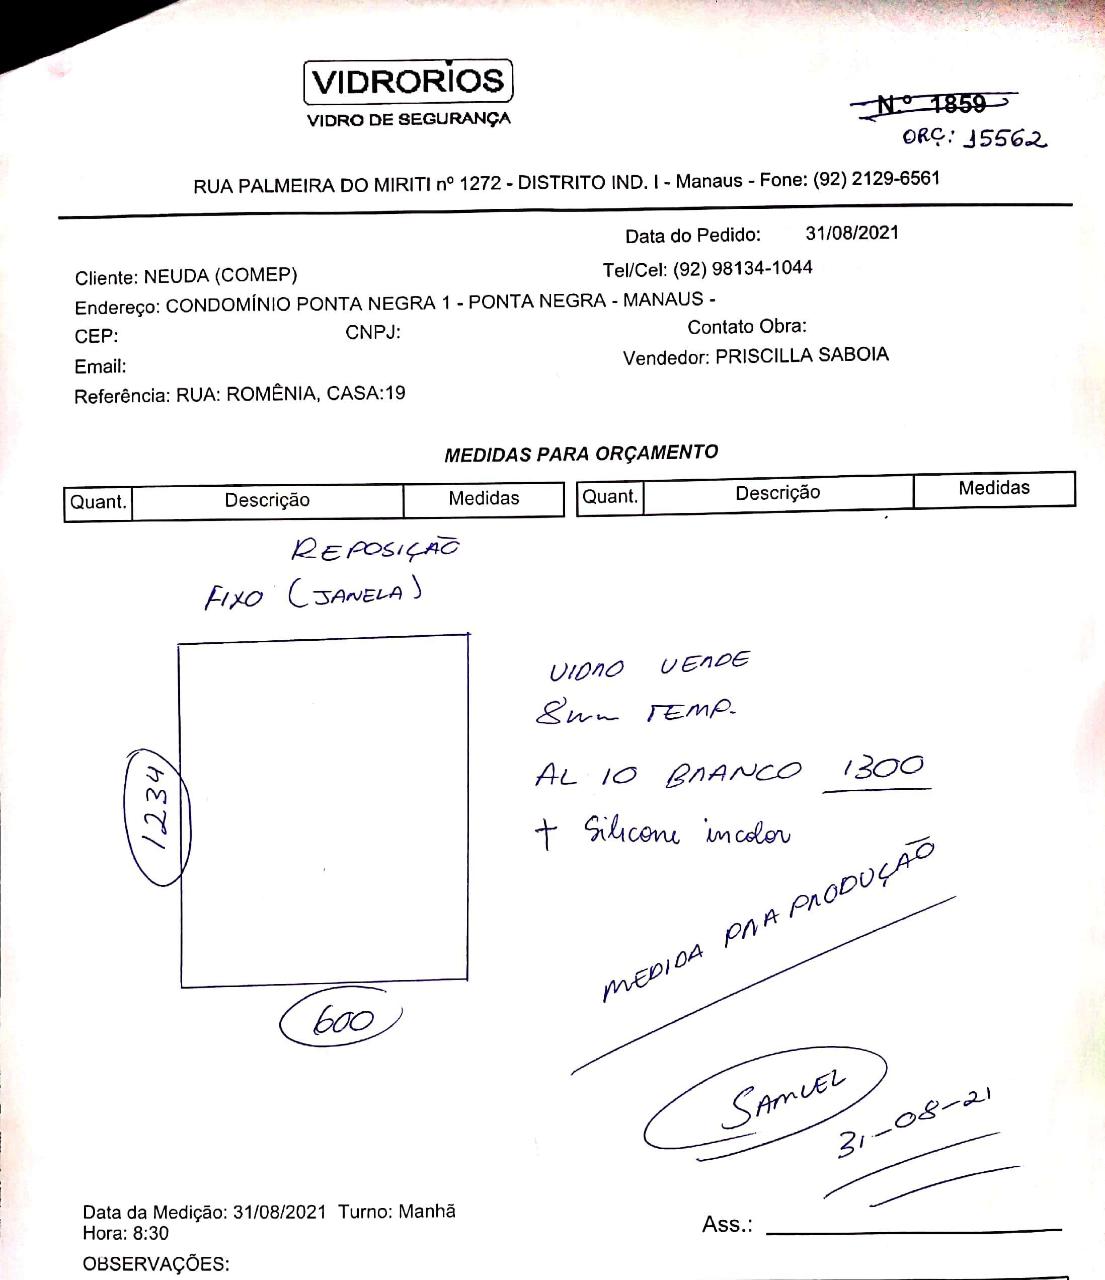 VIDRORIOS
VIDRO DE SEGURANÇA
N.º 1859
ORÇ: 15562
RUA PALMEIRA DO MIRITI nº 1272 - DISTRITO IND. I - Manaus - Fone: (92) 2129-6561
Data do Pedido: 31/08/2021
Cliente: NEUDA (COMEP) Tel/Cel: (92) 98134-1044
Endereço: CONDOMÍNIO PONTA NEGRA 1 - PONTA NEGRA - MANAUS -
CEP: CNPJ: Contato Obra:
Email: Vendedor: PRISCILLA SABOIA
Referência: RUA: ROMÊNIA, CASA:19
MEDIDAS PARA ORÇAMENTO
Quant. Descrição Medidas Quant. Descrição Medidas
REPOSIÇÃO
FIXO (JANELA)
VIDRO VERDE
8mm TEMP.
1234
AL 10 BRANCO 1300
+ Silicone incolor
MEDIDA PRA PRODUÇÃO
600
SAMUEL
31-08-21
Data da Medição: 31/08/2021 Turno: Manhã
Hora: 8:30
Ass.:
OBSERVAÇÕES: